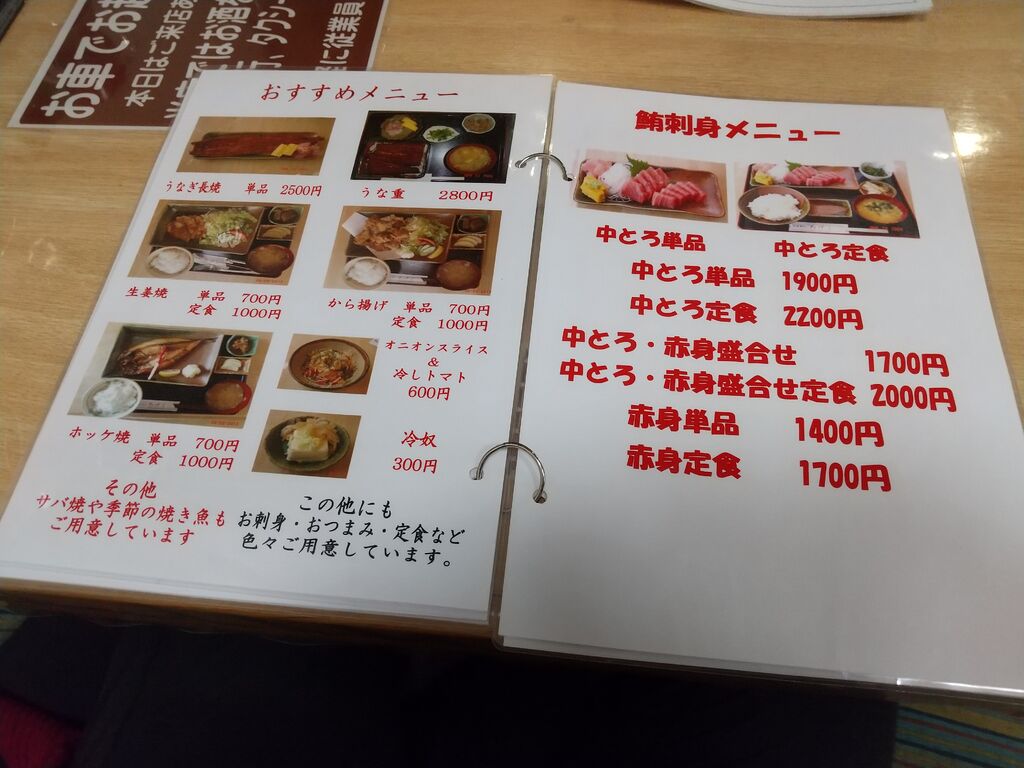 お車でお
本日はご来店
ではお酒
タクシー
に従業員
おすすめメニュー
うなぎ長焼 単品 2500円
うな重 2800円
生姜焼 単品 700円
定食 1000円
から揚げ 単品 700円
定食 1000円
ホッケ焼 単品 700円
定食 1000円
オニオンスライス
&
冷しトマト
600円
冷奴
300円
その他
サバ焼や季節の焼き魚も
ご用意しています
この他にも
お刺身・おつまみ・定食など
色々ご用意しています。
鮪刺身メニュー
中とろ単品 中とろ定食
中とろ単品 1900円
中とろ定食 2200円
中とろ・赤身盛合せ 1700円
中とろ・赤身盛合せ定食 2000円
赤身単品 1400円
赤身定食 1700円